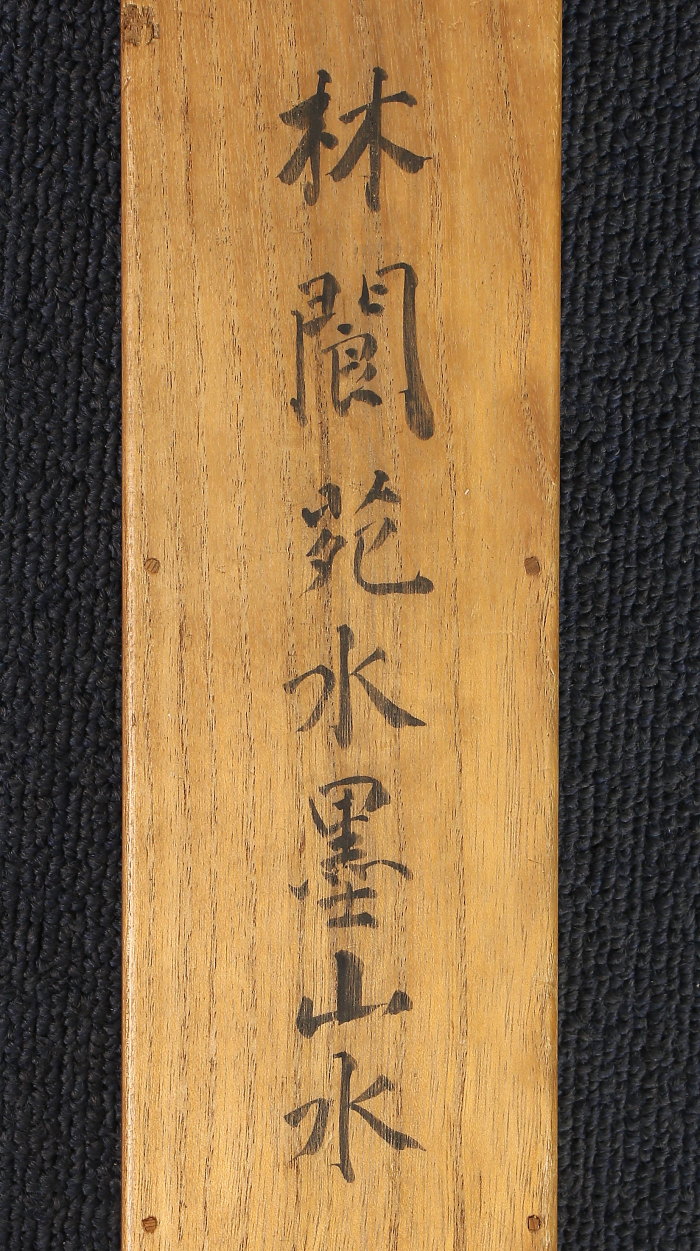 林閬苑水墨山水